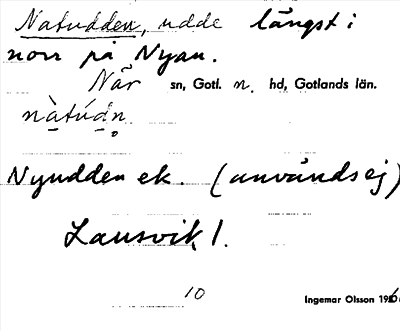 Natudden, udde längst i
norr på Nyan.
När sn, Gotl. n. hd, Gotlands län.
nàtúdn
Nyudden ek. (används ej)
Lausvik 1.
10
Ingemar Olsson 196